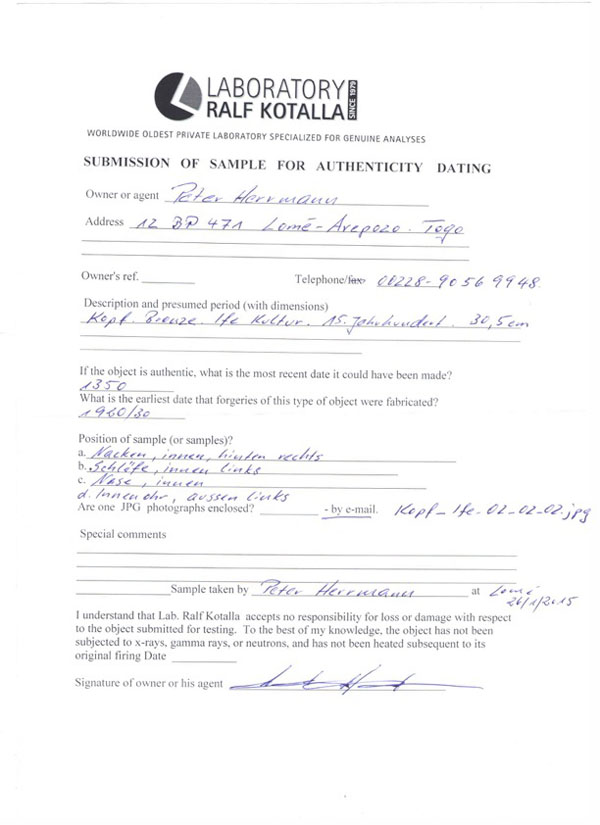 LABORATORY
RALF KOTALLA
SINCE 1979
WORLDWIDE OLDEST PRIVATE LABORATORY SPECIALIZED FOR GENUINE ANALYSES
SUBMISSION OF SAMPLE FOR AUTHENTICITY DATING
Owner or agent Peter Herrmann
Address 12 BP 471 Lomé-Avepozo. Togo
Owner's ref. Telephone/fax 00228-90 56 99 48
Description and presumed period (with dimensions)
Kopf. Bronze. Ife Kultur. 15. Jahrhundert. 30,5cm
If the object is authentic, what is the most recent date it could have been made?
1350
What is the earliest date that forgeries of this type of object were fabricated?
1920/30
Position of sample (or samples)?
a. Nacken, innen, hinten rechts
b. Schläfe, innen links
c. Nase, innen
d. Innenohr, aussen links
Are one JPG photographs enclosed? - by e-mail. Kopf_Ife-02-02-02.jpg
Special comments
Sample taken by Peter Herrmann at Lomé
26/1/2015
I understand that Lab. Ralf Kotalla accepts no responsibility for loss or damage with respect
to the object submitted for testing. To the best of my knowledge, the object has not been
subjected to x-rays, gamma rays, or neutrons, and has not been heated subsequent to its
original firing Date
Signature of owner or his agent